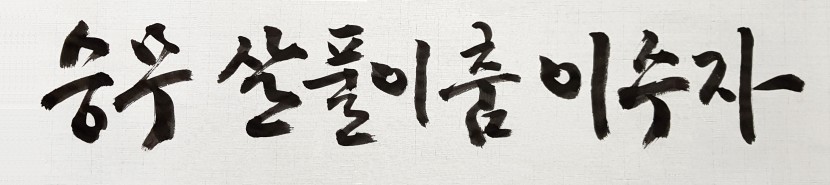 승무 살풀이춤 이수자